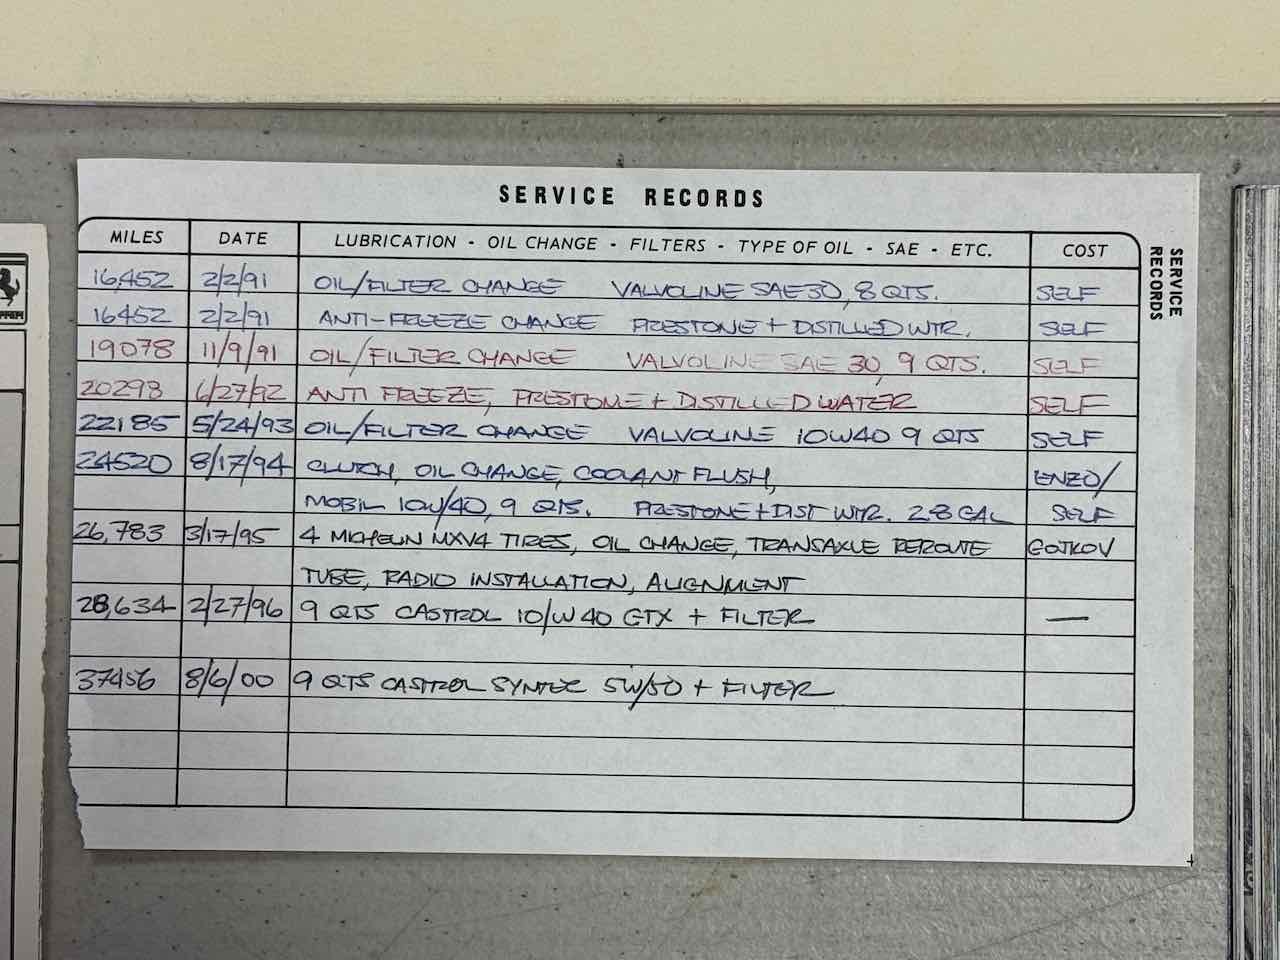 SERVICE RECORDS
MILES DATE LUBRICATION - OIL CHANGE - FILTERS - TYPE OF OIL - SAE - ETC. COST
16,452 2/2/91 OIL/FILTER CHANGE VALVOLINE SAE 30, 8 QTS. SELF
16452 2/2/91 ANTI-FREEZE CHANGE PRESTONE + DISTILLED WTR. SELF
19078 11/9/91 OIL/FILTER CHANGE VALVOLINE SAE 30, 9 QTS. SELF
20298 6/27/92 ANTI FREEZE, PRESTONE + DISTILLED WATER SELF
22185 5/24/93 OIL/FILTER CHANGE VALVOLINE 10W40 9 QTS SELF
24520 8/17/94 CLUTCH, OIL CHANGE, COOLANT FLUSH, ENZO/
MOBIL 10W/40, 9 QTS. PRESTONE + DIST WTR. 2.8 GAL SELF
26,783 3/17/95 4 MICHELIN MXV4 TIRES, OIL CHANGE, TRANSAXLE REROUTE GOTKOV
TUBE, RADIO INSTALLATION, ALIGNMENT
28,634 2/27/96 9 QTS CASTROL 10/W40 GTX + FILTER —
37456 8/6/00 9 QTS CASTROL SYNTEC 5W/50 + FILTER
SERVICE
RECORDS